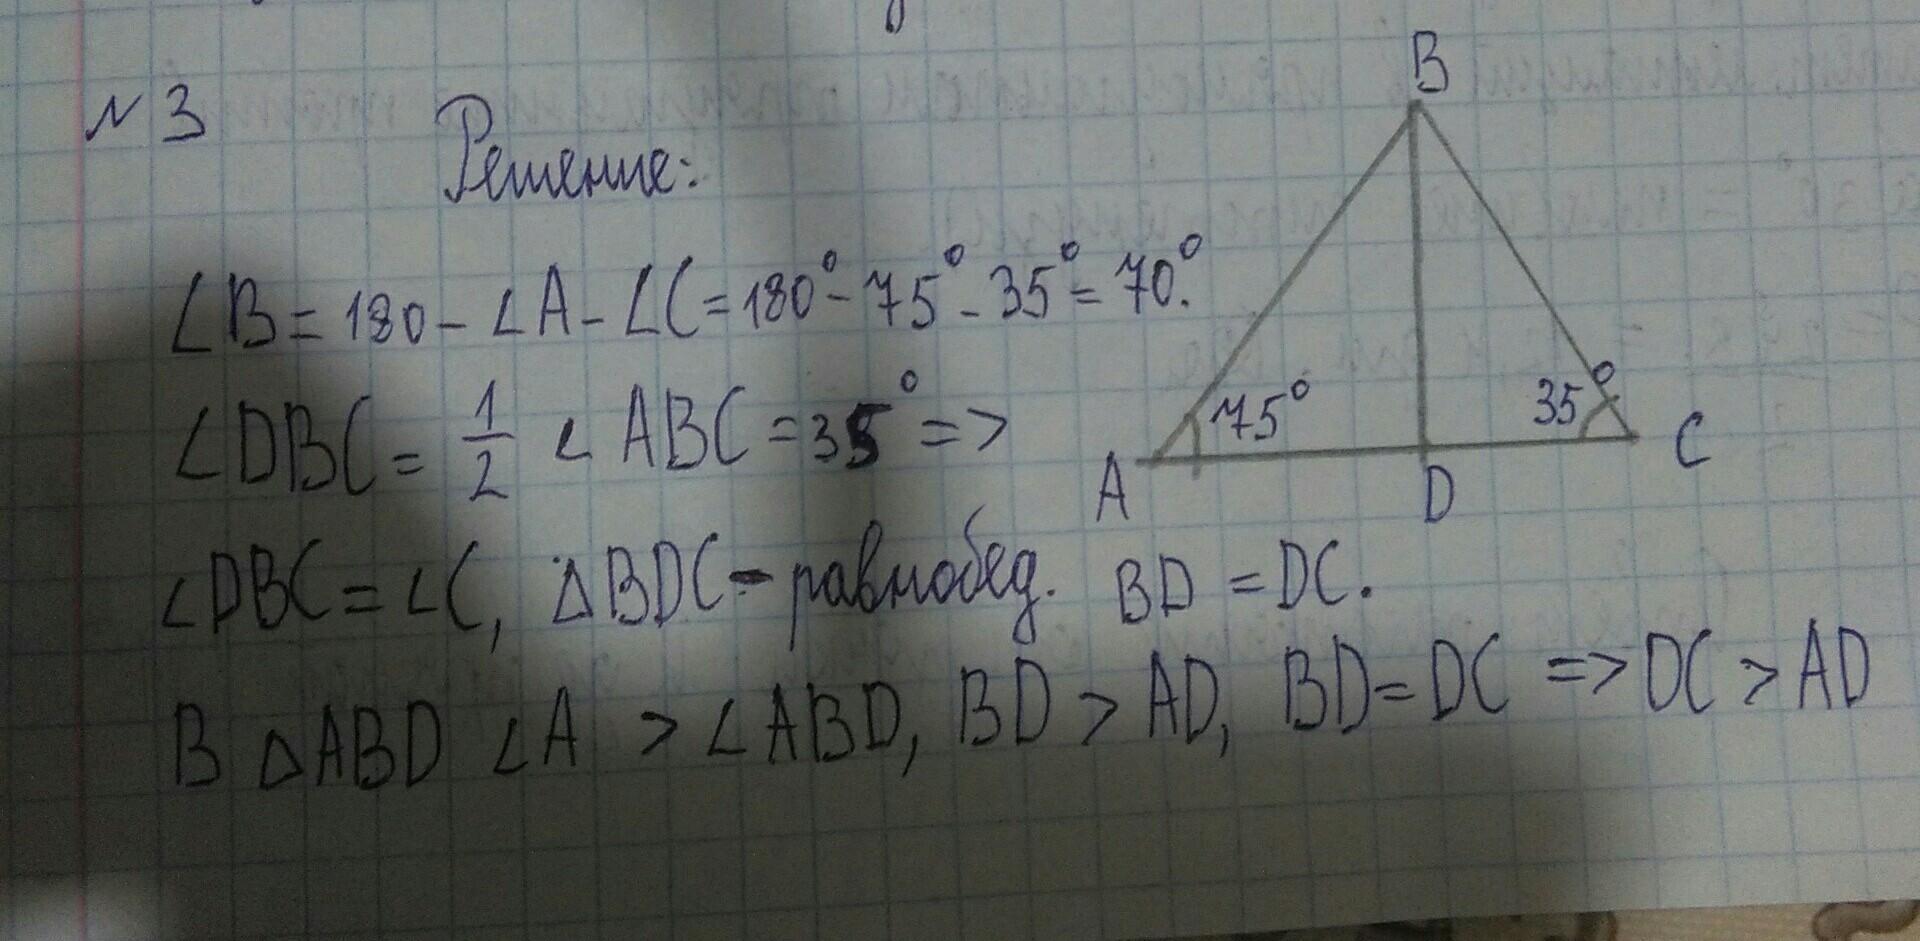 N 3
Решение:
∠B = 180 - ∠A - ∠C = 180° - 75° - 35° = 70°.
∠DBC = 1/2 ∠ABC = 35° =>
∠DBC = ∠C, ΔBDC - равнобед. BD = DC.
В ΔABD ∠A > ∠ABD, BD > AD, BD = DC => DC > AD
B
75°
35°
A
D
C